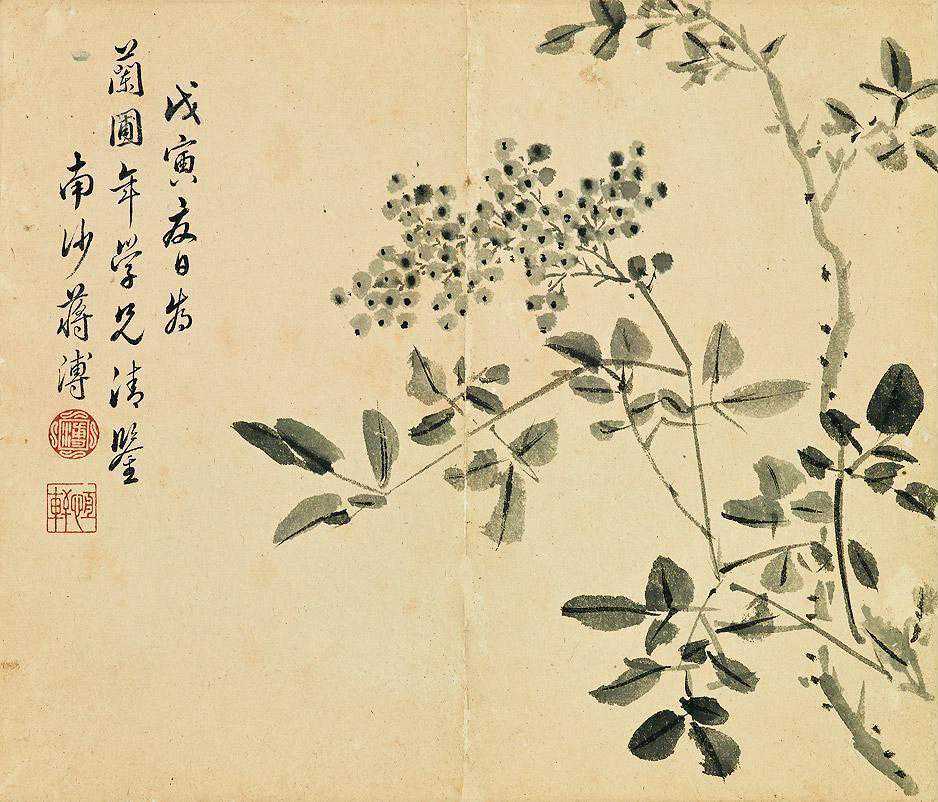 戊寅夏日為
蘭圃年學兄清鑒
南沙蔣溥
恒軒